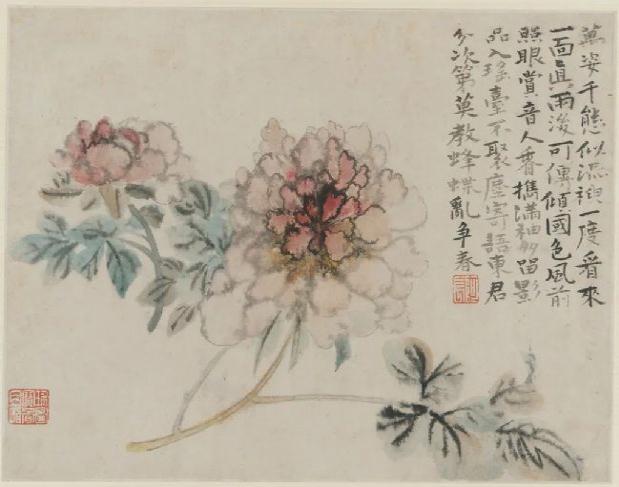 萬姿千態似一度看來
一面真雨後可傳傾國色風前
照眼賞音人香攜滿袖多留影
品入瑤臺不聚塵寄語東君
分次第莫教蜂蝶亂爭春